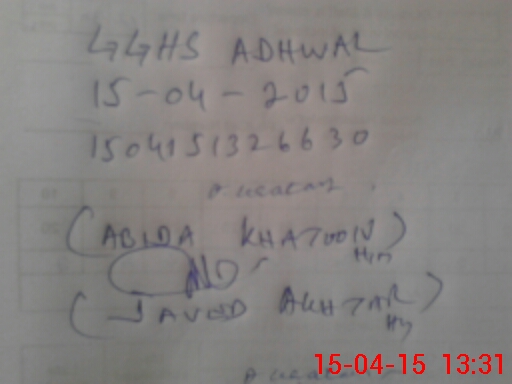 GGHS ADHWAL
15-04-2015
1504151326630
(ABIDA KHATOON)
Hm
NO
(JAVED AKHTAR)
Hm
15-04-15 13:31